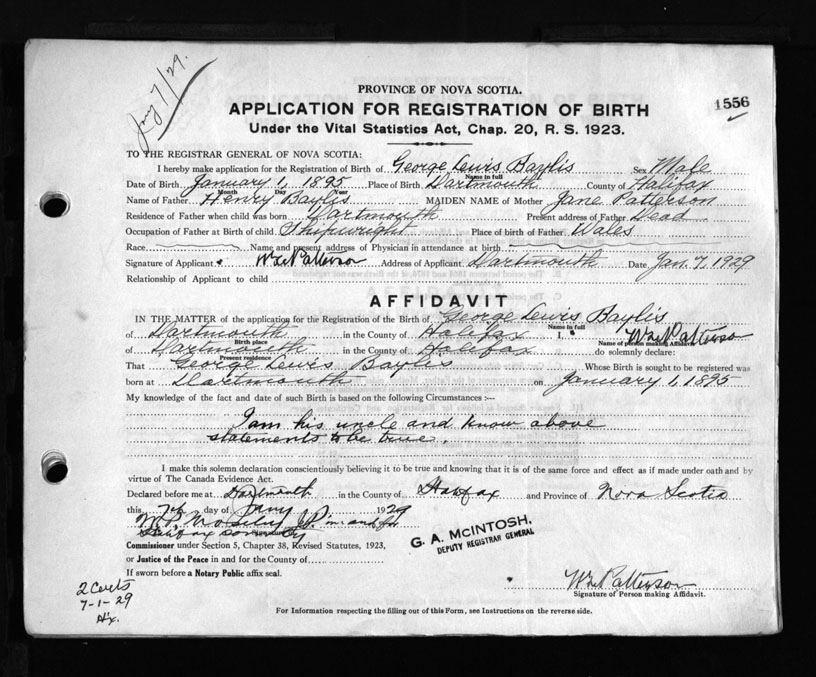 Jany 7/29.
PROVINCE OF NOVA SCOTIA.
1556
APPLICATION FOR REGISTRATION OF BIRTH
Under the Vital Statistics Act, Chap. 20, R. S. 1923.
TO THE REGISTRAR GENERAL OF NOVA SCOTIA:
I hereby make application for the Registration of Birth of George Lewis Baylis Sex Male
Name in full
Date of Birth January 1, 1895 Place of Birth Dartmouth County of Halifax
Month Day Year
Name of Father Henry Baylis MAIDEN NAME of Mother Jane Patterson
Residence of Father when child was born Dartmouth Present address of Father Dead
Occupation of Father at Birth of child Shipwright Place of birth of Father Wales
Race Name and present address of Physician in attendance at birth
Signature of Applicant Patterson Address of Applicant Dartmouth Date Jan. 7, 1929
Relationship of Applicant to child
AFFIDAVIT
IN THE MATTER of the application for the Registration of the Birth of George Lewis Baylis
Name in full
of Dartmouth in the County of Halifax I, Patterson
Birth place
Name of person making Affidavit
of Dartmouth in the County of Halifax do solemnly declare:
Present residence
That George Lewis Baylis Whose Birth is sought to be registered was
born at Dartmouth on January 1, 1895
My knowledge of the fact and date of such Birth is based on the following Circumstances :-
I am his uncle and know above
statements to be true.
I make this solemn declaration conscientiously believing it to be true and knowing that it is of the same force and effect as if made under oath and by
virtue of The Canada Evidence Act.
Declared before me at Dartmouth in the County of Halifax and Province of Nova Scotia
this 7th day of Jany 1929
Halifax county
G. A. McINTOSH,
DEPUTY REGISTRAR GENERAL
Commissioner under Section 5, Chapter 38, Revised Statutes, 1923,
or Justice of the Peace in and for the County of
If sworn before a Notary Public affix seal.
Patterson
Signature of Person making Affidavit.
2 Certs
7-1-29
Hx.
For Information respecting the filling out of this Form, see Instructions on the reverse side.